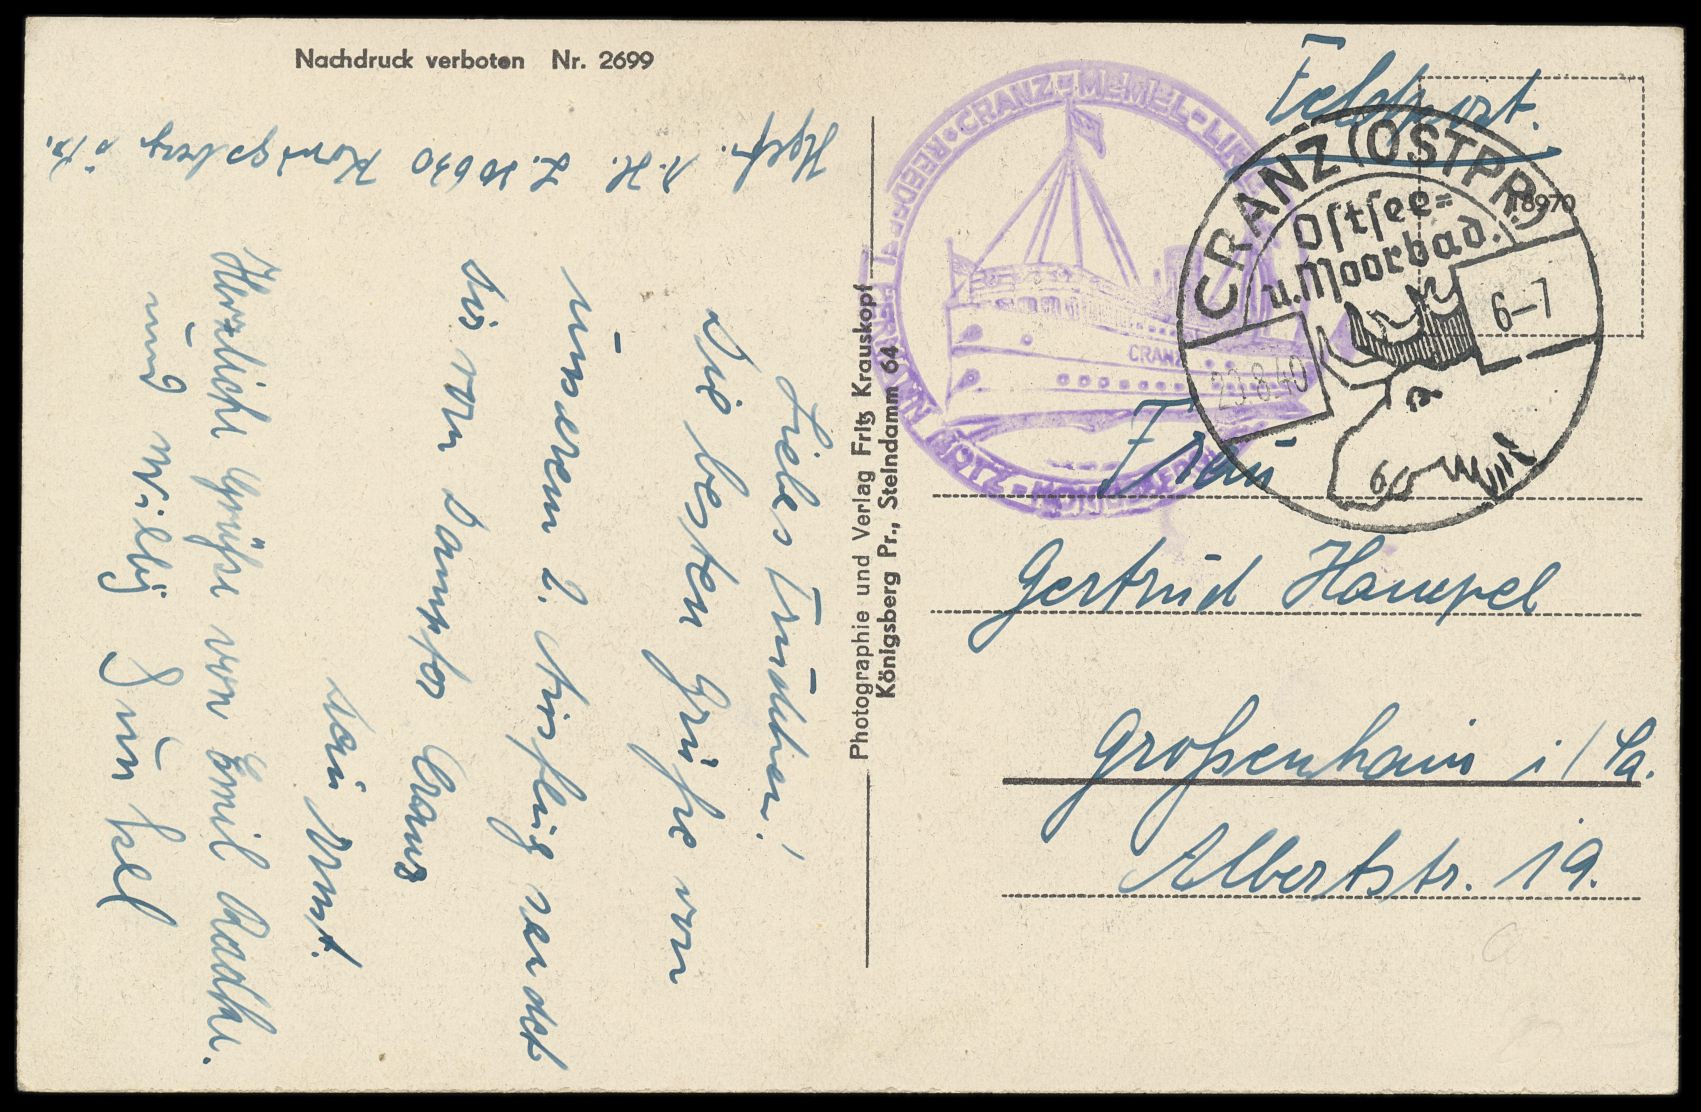 Nachdruck verboten Nr. 2699
L. 20630 Königsberg
Liebes Trudchen!
Die besten Grüße von
unserem 2. Ausflug sendet
Dir vom Dampfer Cranz
Dein Ernst.
Herzliche Grüße von Emil
und Willy Kunkel
Photographie und Verlag Fritz Krauskopf
Königsberg Pr., Steindamm 64
REEDEREI HERMANN GÖTZ - KÖNIGSBERG • CRANZ - MEMEL - LINIE
CRANZ
Feldpost.
CRANZ (OSTPR.)
Ostsee=
u. Moorbad.
6-7
8.40
18970
Frau
Gertrud Hampel
Großenhain i/Sa.
Albertstr. 19.